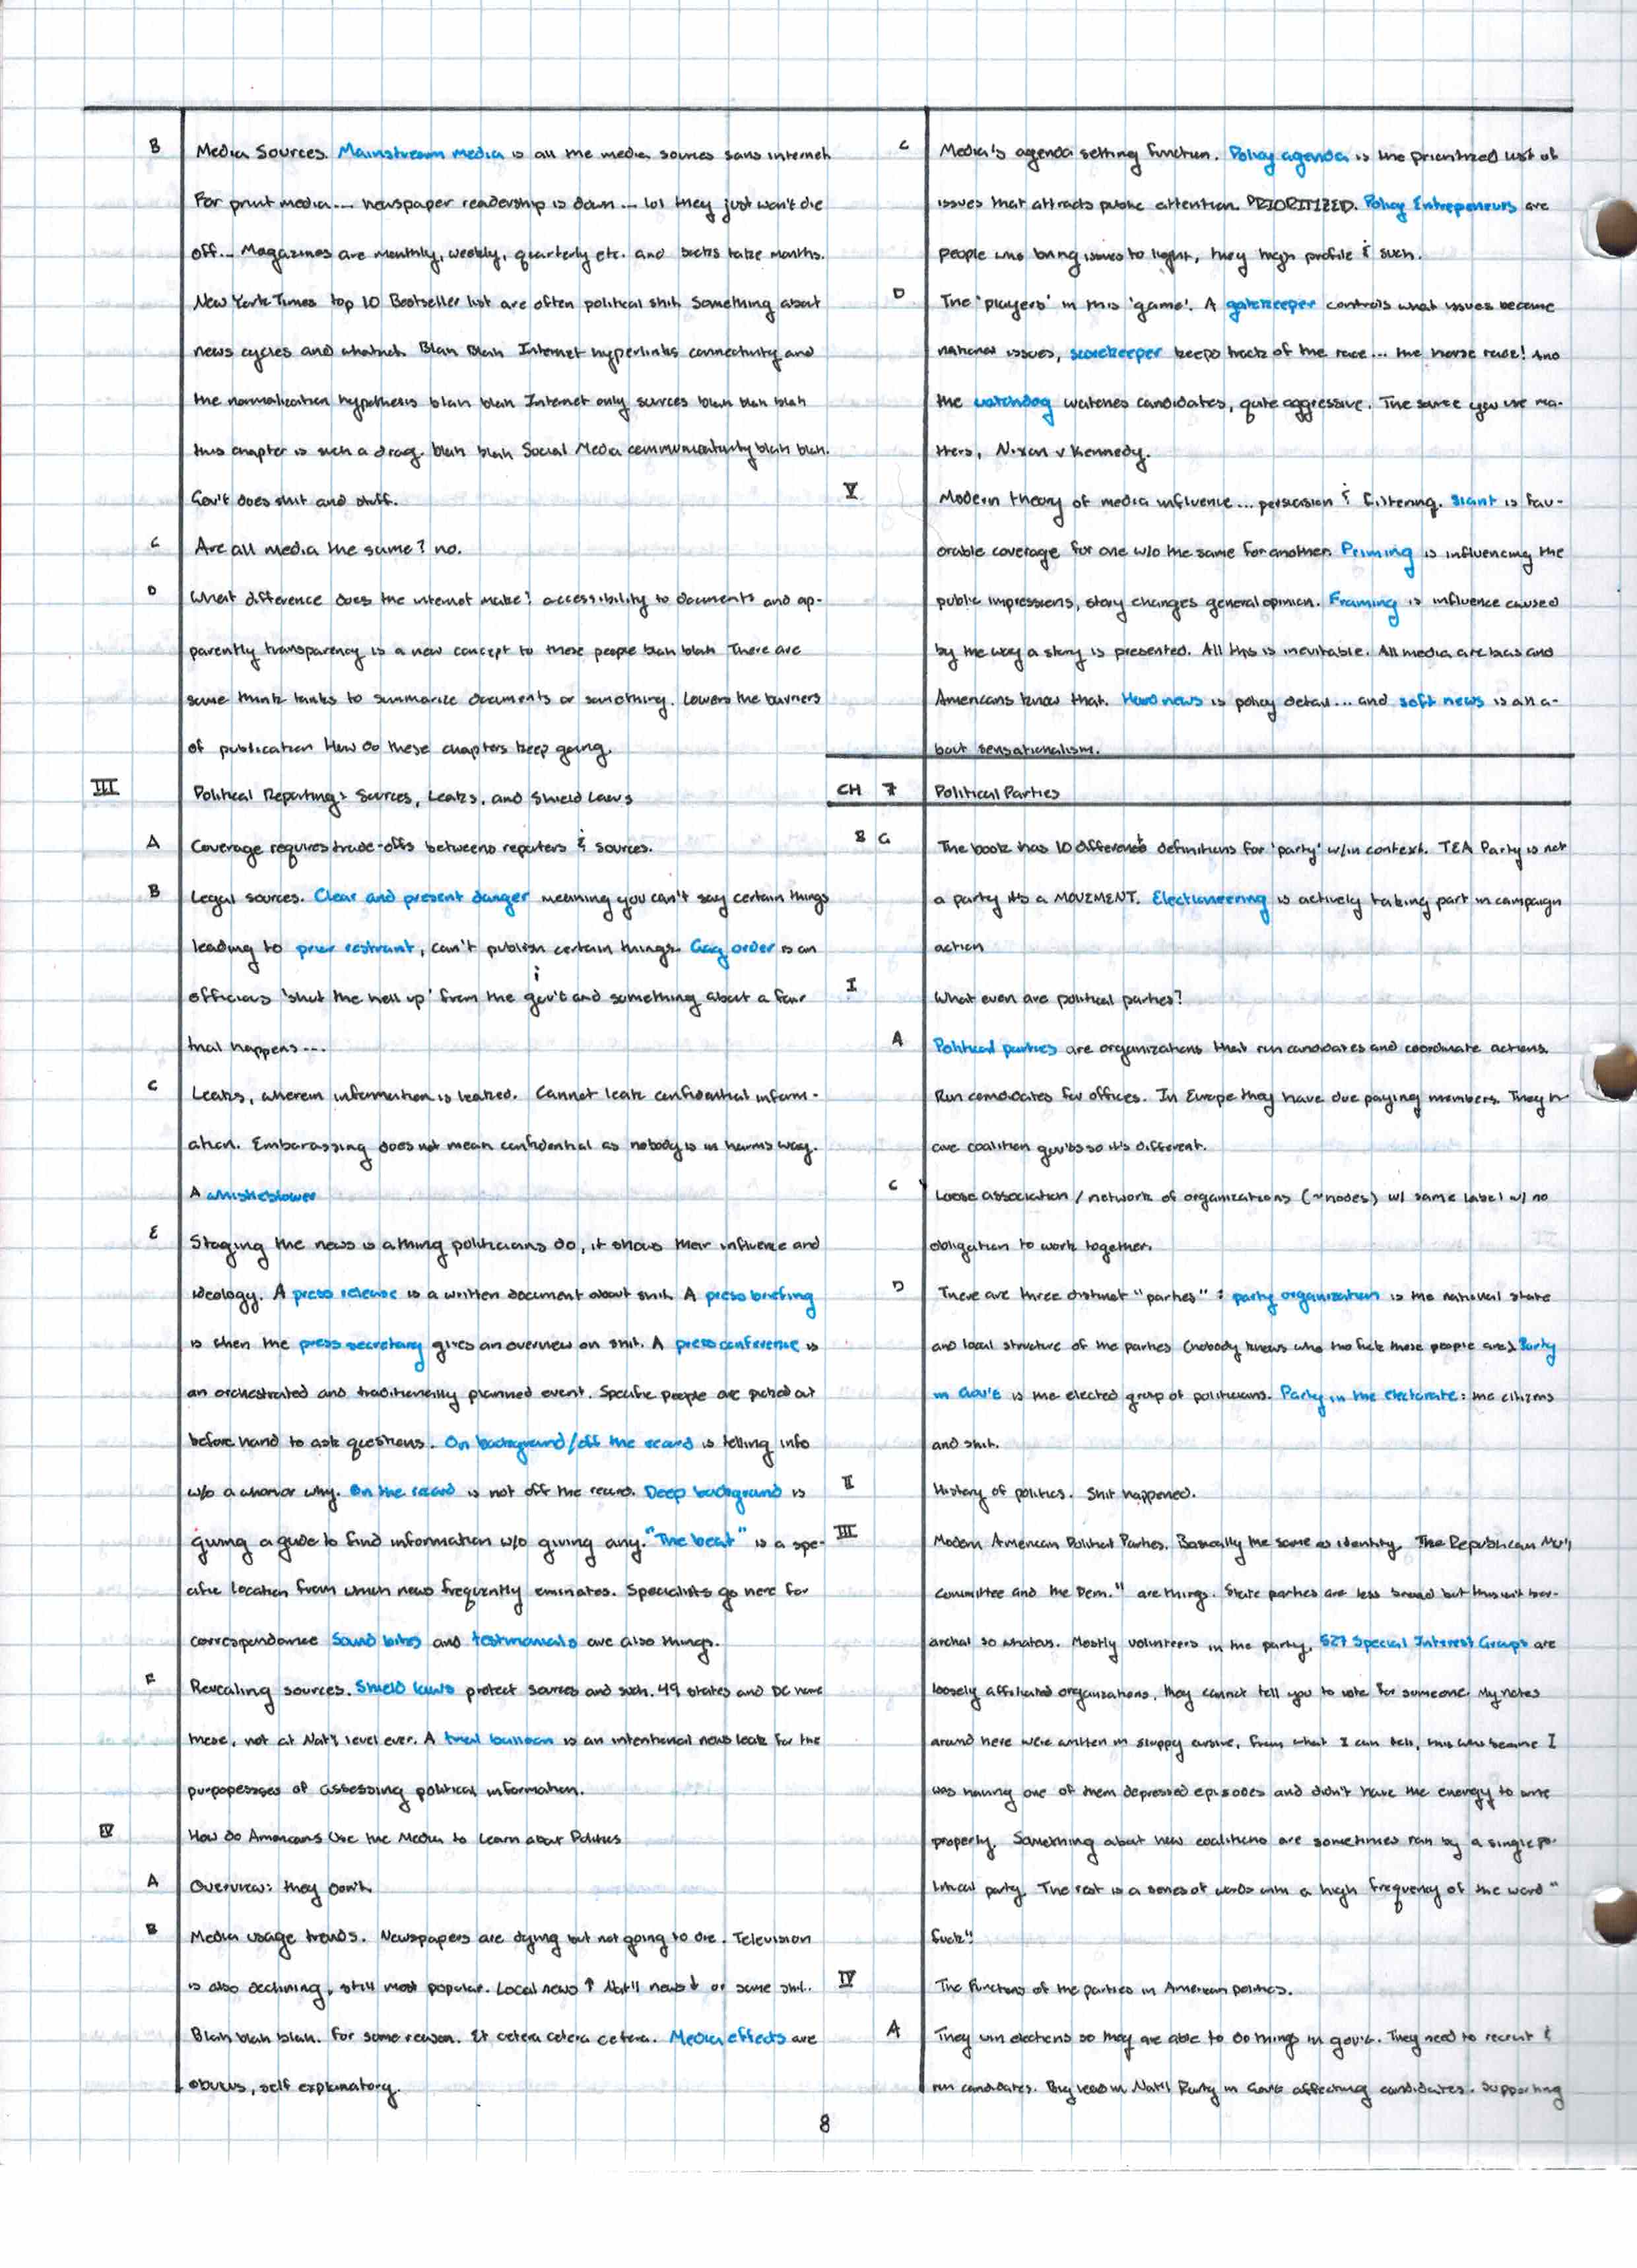 B Media Sources. Mainstream media is all the media sources sans internet
For print media... newspaper readership is down... lol they just won't die
off... Magazines are monthly, weekly, quarterly etc. and books take months.
New York Times top 10 Bestseller list are often political shit. Something about
news cycles and whatnot. Blah Blah Internet hyperlinks connectivity and
the normalization hypothesis blah blah Internet only sources blah blah blah
this chapter is such a drag. blah blah Social Media blah blah.
Gov't does shit and stuff.
C Are all media the same? no.
D What difference does the internet make? accessibility to documents and ap-
parently transparency is a new concept to these people blah blah There are
some think tanks to summarize documents or something. Lowers the barriers
of publication How do these chapters keep going.
III Political Reporting: Sources, Leaks, and Shield Laws
A Coverage requires trade-offs betweens reporters & sources.
B Legal sources. Clear and present danger meaning you can't say certain things
leading to prior restraint, can't publish certain things. Gag order is an
officious 'shut the hell up' from the gov't and something about a fair
trial happens...
C Leaks, wherein information is leaked. Cannot leak confidential inform-
ation. Embarassing does not mean confidential as nobody is in harms way.
A whistleblower
E Staging the news is a thing politicians do, it shows their influence and
ideology. A press release is a written document about shit. A press briefing
is when the press secretary gives an overview on shit. A press conference is
an orchestrated and traditionally planned event. Specific people are picked out
before hand to ask questions. On background/off the record is telling info
w/o a who nor why. On the record is not off the record. Deep background is
giving a guide to find information w/o giving any. "The beat" is a spe-
cific location from which news frequently eminates. Specialists go here for
correspondance Sound bites and testimonials are also things.
F Revealing sources. Shield laws protect sources and such. 49 states and DC have
these, not at Nat'l level ever. A trial balloon is an intentional news leak for the
purpopesses of assessing political information.
IV How do Americans Use the Media to Learn about Politics
A Overview: they don't.
B Media usage trends. Newspapers are dying but not going to die. Television
is also declining, still most popular. Local news ↑ Nat'll news ↓ or some shit.
Blah blah blah. For some reason. Et cetera cetera cetera. Media effects are
obvius, self explanatory.
C Media's agenda setting function. Policy agenda is the prioritized list of
issues that attracts public attention. PRIORITIZED. Policy Entrepeneurs are
people who bring issues to light, they high profile & such.
D The 'players' in this 'game'. A gatekeeper controls what issues become
national issues, scorekeeper keeps track of the race... the horse race! And
the watchdog watches candidates, quite aggressive. The source you use ma-
tters, Nixon v Kennedy.
V Modern theory of media influence... persuasion & filtering. Slant is fav-
orable coverage for one w/o the same for another. Priming is influencing the
public impressions, story changes general opinion. Framing is influence caused
by the way a story is presented. All this is inevitable. All media are bias and
Americans know that. Hard news is policy detail... and soft news is all a-
bout sensationalism.
CH 7 Political Parties
B G The book has 10 different definitions for 'party' w/in context. TEA Party is not
a party it's a MOVEMENT. Electioneering is actively taking part in campaign
action
I What even are political parties?
A Political parties are organizations that run candidates and coordinate actions.
Run candidates for offices. In Europe they have due paying members. They h-
ave coalition gov'ts so it's different.
C Loose association / network of organizations (~nodes) w/ same label w/ no
obligation to work together.
D There are three distinct "parties" : party organization is the national state
and local structure of the parties (nobody knows who the fuck these people are). Party
in Gov't is the elected group of politicians. Party in the electorate: the citizens
and shit.
II History of politics. Shit happened.
III Modern American Political Parties. Basically the same as identity. The Republican Nat'l
Committee and the Dem. " are things. State parties are less broad but this isn't hier-
archal so whatevs. Mostly volunteers in the party. 527 Special Interest Groups are
loosely affiliated organizations, they cannot tell you to vote for someone. My notes
around here were written in sloppy cursive, from what I can tell, this was because I
was having one of them depressed episodes and didn't have the energy to write
properly. Something about new coalitions are sometimes ran by a single po-
litical party. The rest is a series of words with a high frequency of the word "
fuck".
IV The functions of the parties in American politics.
A They win elections so they are able to do things in gov't. They need to recruit &
run candidates. Big lead in Nat'l Party in Gov't affecting candidates. Supporting
8